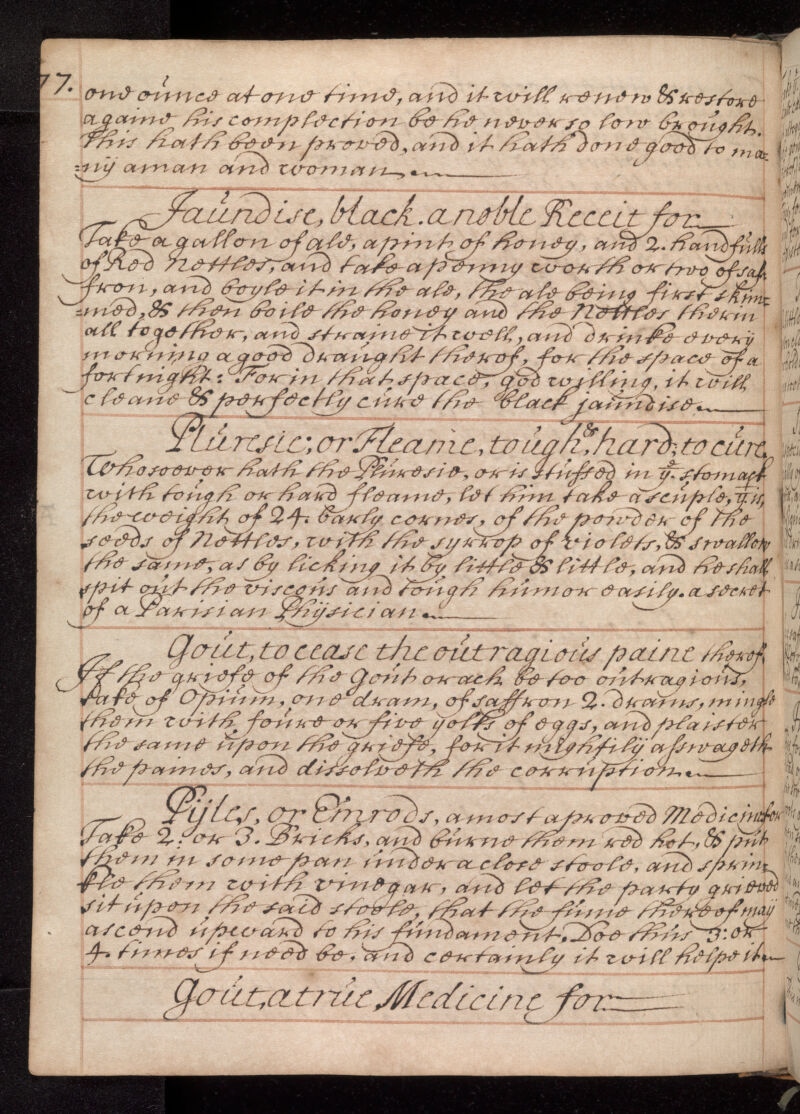 77.
one ounce at one time, and it will renew & restore
againe his complection be he never so low brought.
This hath been proved, and it hath done good to ma=
=ny a man and woman.
Jaundise, black. a noble Receit for
Take a gallon of ale, a pint of honey, and 2. handfulls
of Red Nettles, and take a penny worth or two of saf=
fron, and boyle it in the ale, the ale being first skim=
=med, & then boile the honey and the Nettles therin
all together, and straine it well, and drinke every
morning a good draught therof, for the space of a
fortnight: For in that space, god willing, it will
cleane & perfectly cure the black jaundise.
Pluresie; or Fleame, tough, & hard; to cure.
Whosoever hath the Pluresie, or is stuffed in ye. stomack
with tough or hard fleame, let him take a scuple, yt is,
the weight of 24. barly cornes, of the powder of the
seeds of Nettles, with the syrrop of violets, & swallow
the same, as by licking it by little & little, and he shall
spit out the viscous and tough humor easily. a secret
of a Parisian Physician.
Gout, to cease the outragious paine therof.
If the griefe of the Gout or ach be too outragious,
take of Opium, one dram, of saffron 2. drams, mingle
them with foure or five yolks of eggs, and plaister
the same upon the griefe, for it mightily asswageth
the paines, and dissolveth the corruption.
Pijles, or Emrods, a most aproved Medicine for
Take 2. or 3. Bricks, and burne them red hot, & put
them in some pan under a close stoole, and sprin=
kle them with vinegar, and let the party grieved
sit upon the said stoole, that the fume thereof may
ascend upward to his fundament. Doe thus 3: or
4. times if need be, and certainly it will helpe it
Gout, a true Medicine for